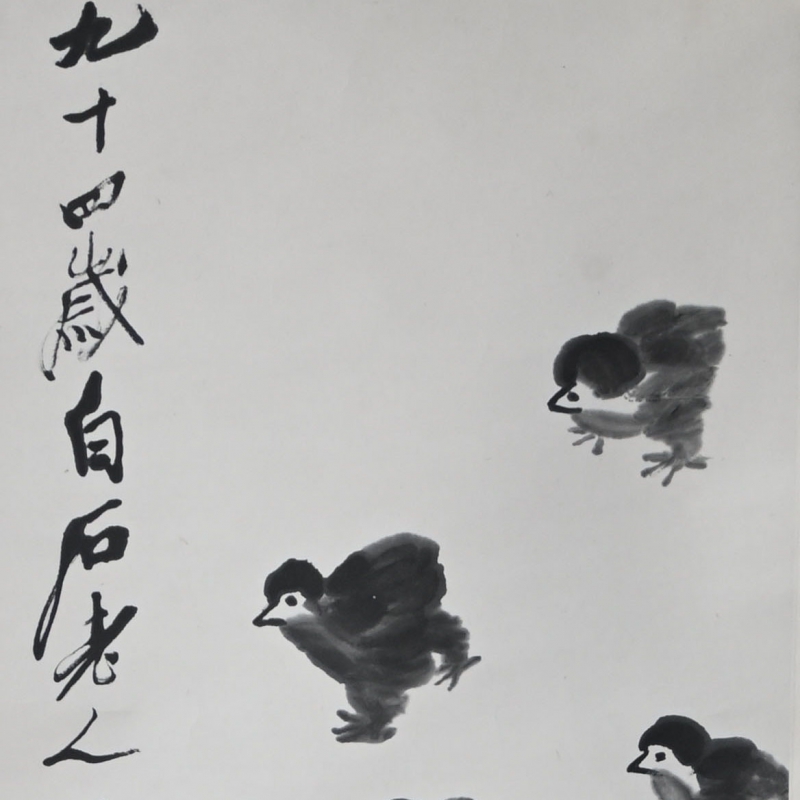 九十四歲白石老人